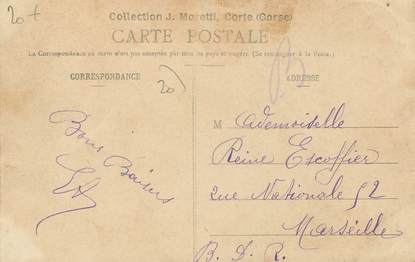 20+
Collection J. Moretti, Corte (Corse)
CARTE POSTALE
La Correspondance au recto n'est pas acceptée par tous les pays étrangers. (Se renseigner à la Poste.)
CORRESPONDANCE
20
ADRESSE
Bons Baisers
M ademoiselle
Reine Escoffier
rue Nationale 52
Marseille
B. D. R.